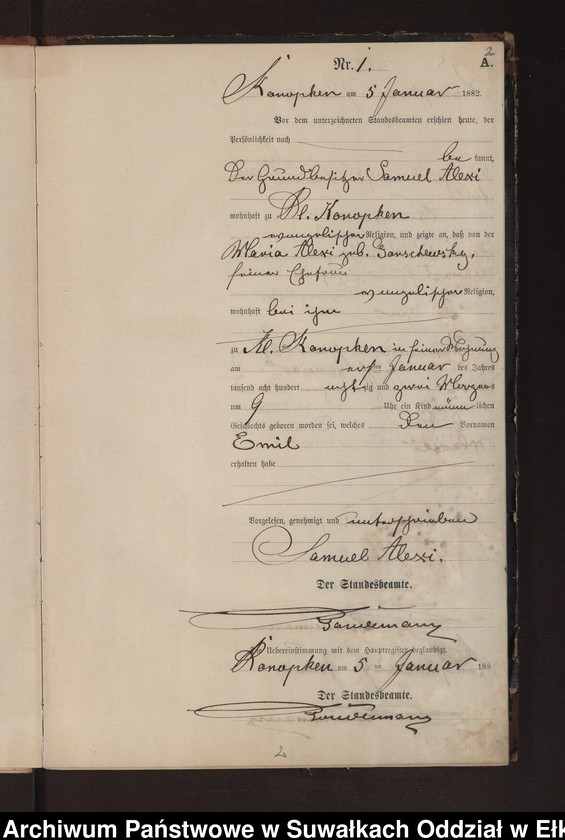 2
Nr. 1.
A.
Konopken am 5 Januar 1882.
Vor dem unterzeichneten Standesbeamten erschien heute, der
Persönlichkeit nach
bekannt,
Der Grundbesitzer Samuel Alexi
wohnhaft zu Kl. Konopken
evangelischer Religion, und zeigte an, daß von der
Maria Alexi geb.
seiner Ehefrau
evangelischer Religion,
wohnhaft bei ihm
zu Kl. Konopken in seiner Wohnung
am ersten Januar des Jahres
tausend acht hundert achtzig und zwei Morgens
um 9 Uhr ein Kind männlichen
Geschlechts geboren worden sei, welches den Vornamen
Emil
erhalten habe
Vorgelesen, genehmigt und unterschrieben
Samuel Alexi.
Der Standesbeamte.
Uebereinstimmung mit dem Hauptregister beglaubigt.
Konopken am 5 ten Januar 188
Der Standesbeamte.
2
Archiwum Państwowe w Suwałkach Oddział w Ełk